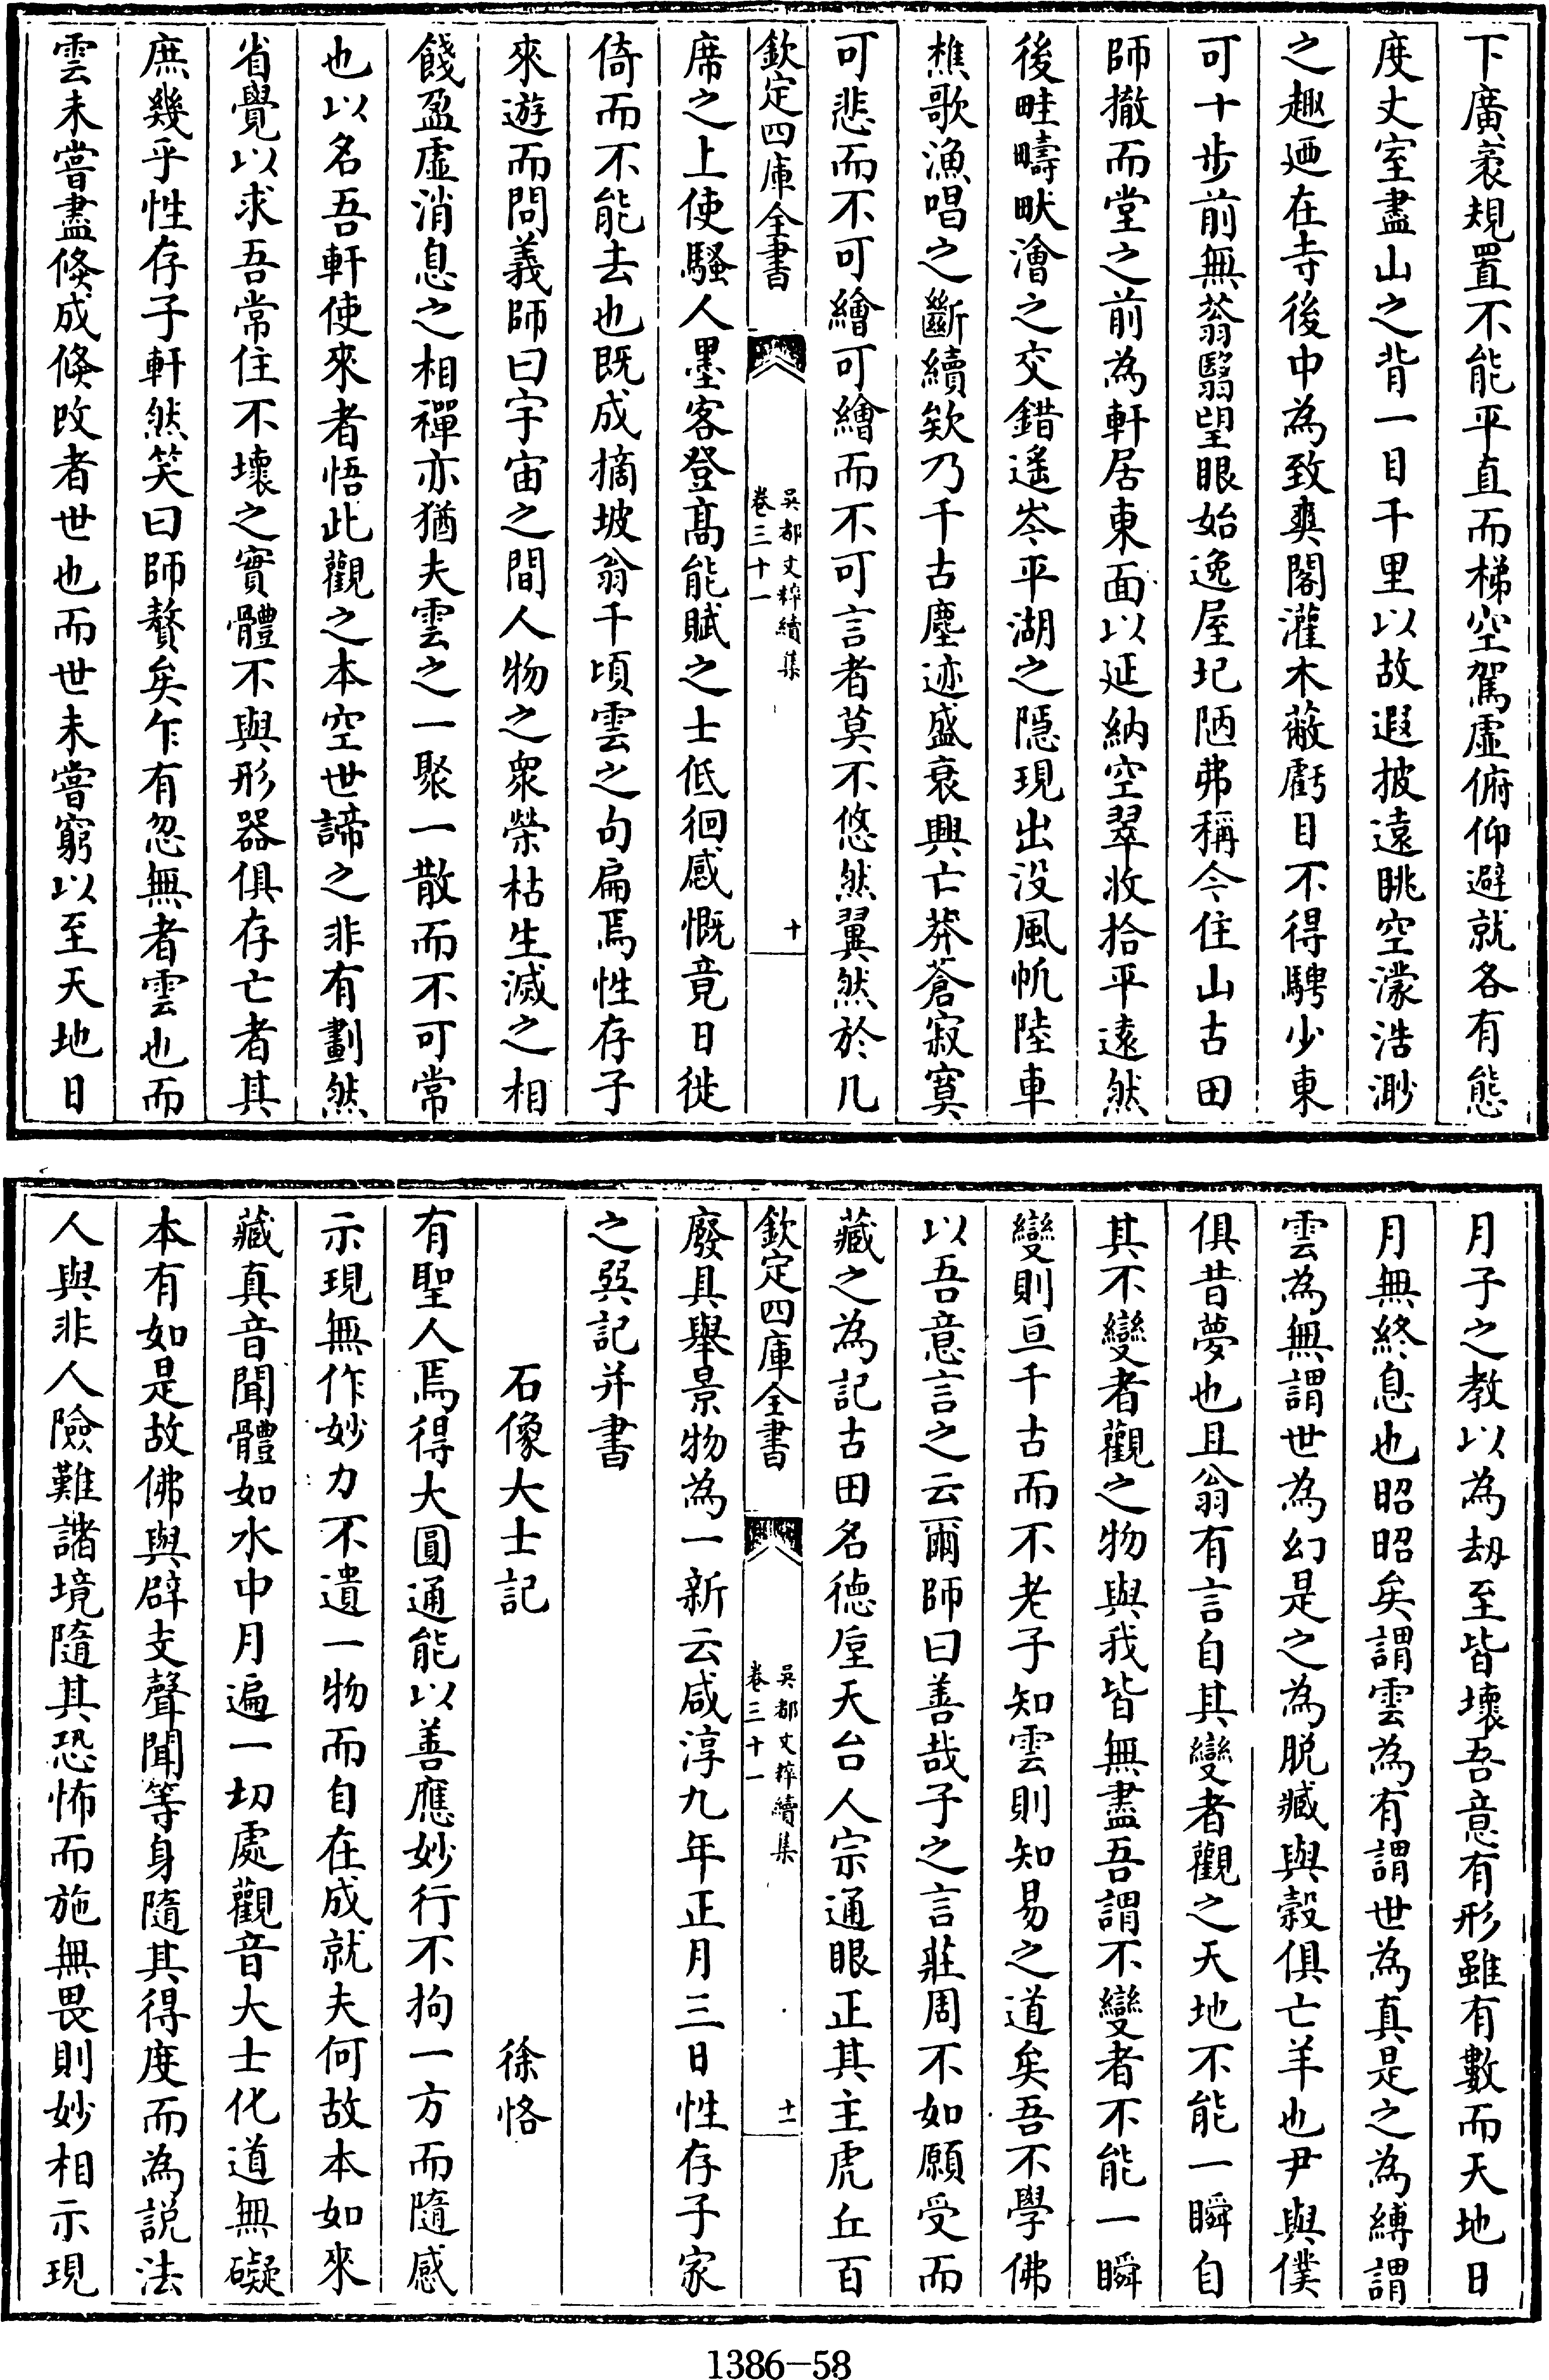 下廣袤規置不能平直而梯空駕虛俯仰避就各有態
度丈室盡山之背一目千里以故遐披遠眺空濛浩渺
之趣廼在寺後中為致爽閣灌木蔽虧目不得騁少東
可十步前無蓊翳望眼始逸屋圮陋弗稱今住山古田
師撤而堂之前為軒居東面以延納空翠收拾平遠然
後畦疇畎澮之交錯遙岑平湖之隱現出没風帆陸車
樵歌漁唱之斷續欸乃千古塵迹盛衰興亡莽蒼寂寞
可悲而不可繪可繪而不可言者莫不悠然翼然於几
欽定四庫全書
吳都文粹續集
卷三十一
十
席之上使騷人墨客登髙能賦之士低徊感慨竟日徙
倚而不能去也既成摘坡翁千頃雲之句扁焉性存子
來遊而問義師曰宇宙之間人物之衆榮枯生滅之相
餞盈虛消息之相禪亦猶夫雲之一聚一散而不可常
也以名吾軒使來者悟此觀之本空世諦之非有劃然
省覺以求吾常住不壞之實體不與形器俱存亡者其
庶幾乎性存子軒然笑曰師贅矣乍有忽無者雲也而
雲未嘗盡倐成倐改者世也而世未嘗窮以至天地日
月子之教以為刼至皆壞吾意有形雖有數而天地日
月無終息也昭昭矣謂雲為有謂世為真是之為縛謂
雲為無謂世為幻是之為脱臧與榖俱亡羊也尹與僕
俱昔夢也且翁有言自其變者觀之天地不能一瞬自
其不變者觀之物與我皆無盡吾謂不變者不能一瞬
變則亘千古而不老子知雲則知易之道矣吾不學佛
以吾意言之云爾師曰善哉子之言莊周不如願受而
藏之為記古田名德垕天台人宗通眼正其主虎丘百
欽定四庫全書
吳都文粹續集
卷三十一
十一
廢具舉景物為一新云咸淳九年正月三日性存子家
之巽記并書
石像大士記 徐恪
有聖人焉得大圓通能以善應妙行不拘一方而隨感
示現無作妙力不遺一物而自在成就夫何故本如來
藏真音聞體如水中月遍一切處觀音大士化道無礙
本有如是故佛與辟支聲聞等身隨其得度而為説法
人與非人險難諸境隨其恐怖而施無畏則妙相示現
1386-58